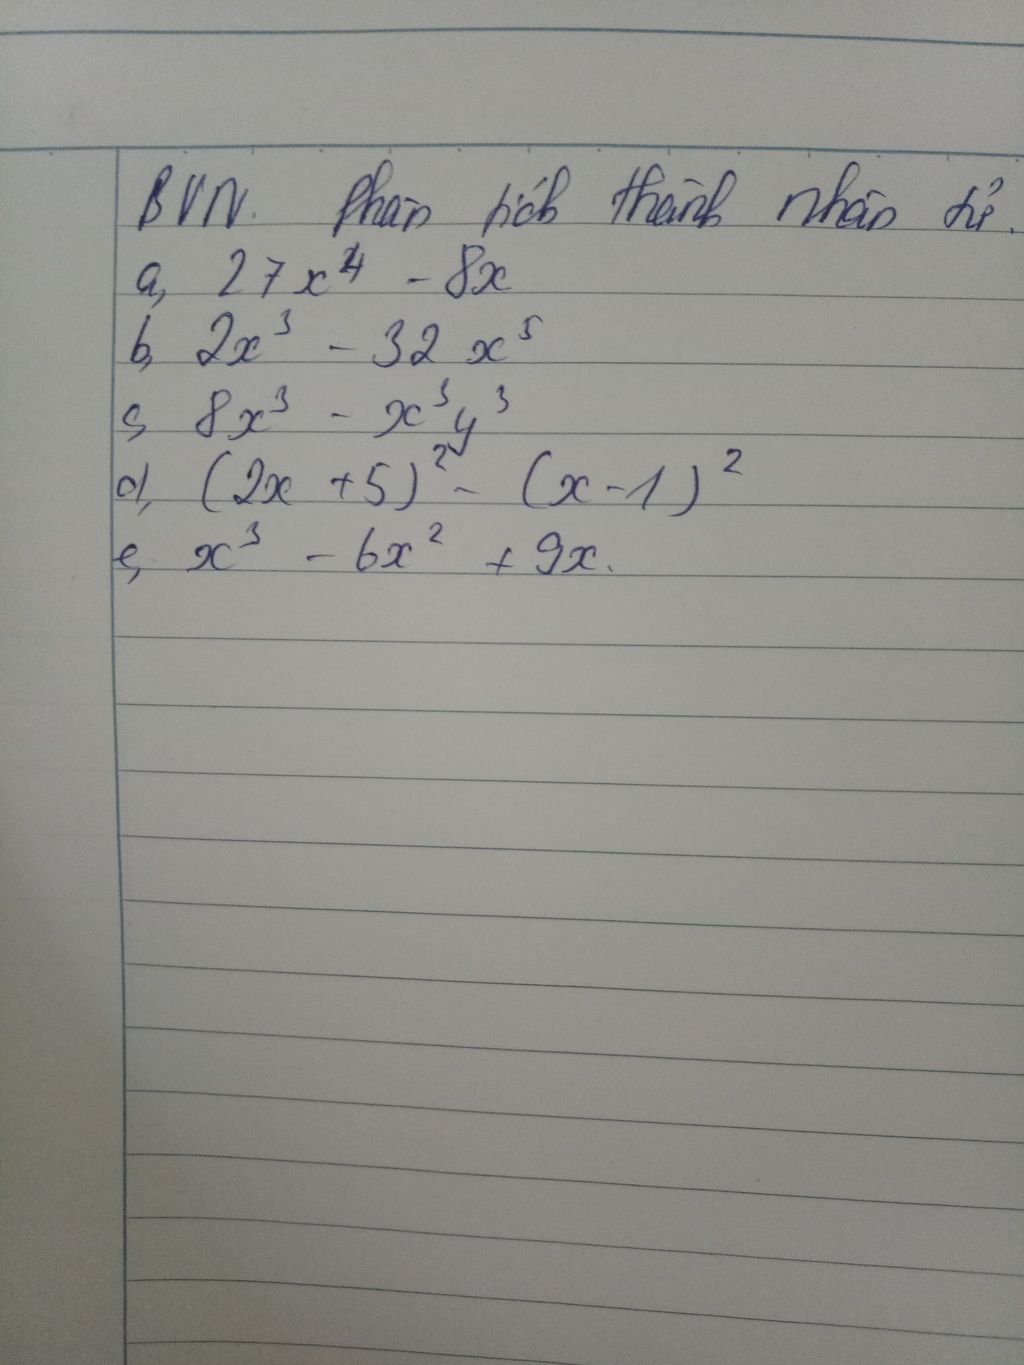 BVN. Phân tích thành nhân tử.
a, 27x⁴ - 8x
b, 2x³ - 32 x⁵
c, 8x³ - x³y³
d, (2x + 5)² - (x - 1)²
e, x³ - 6x² + 9x.